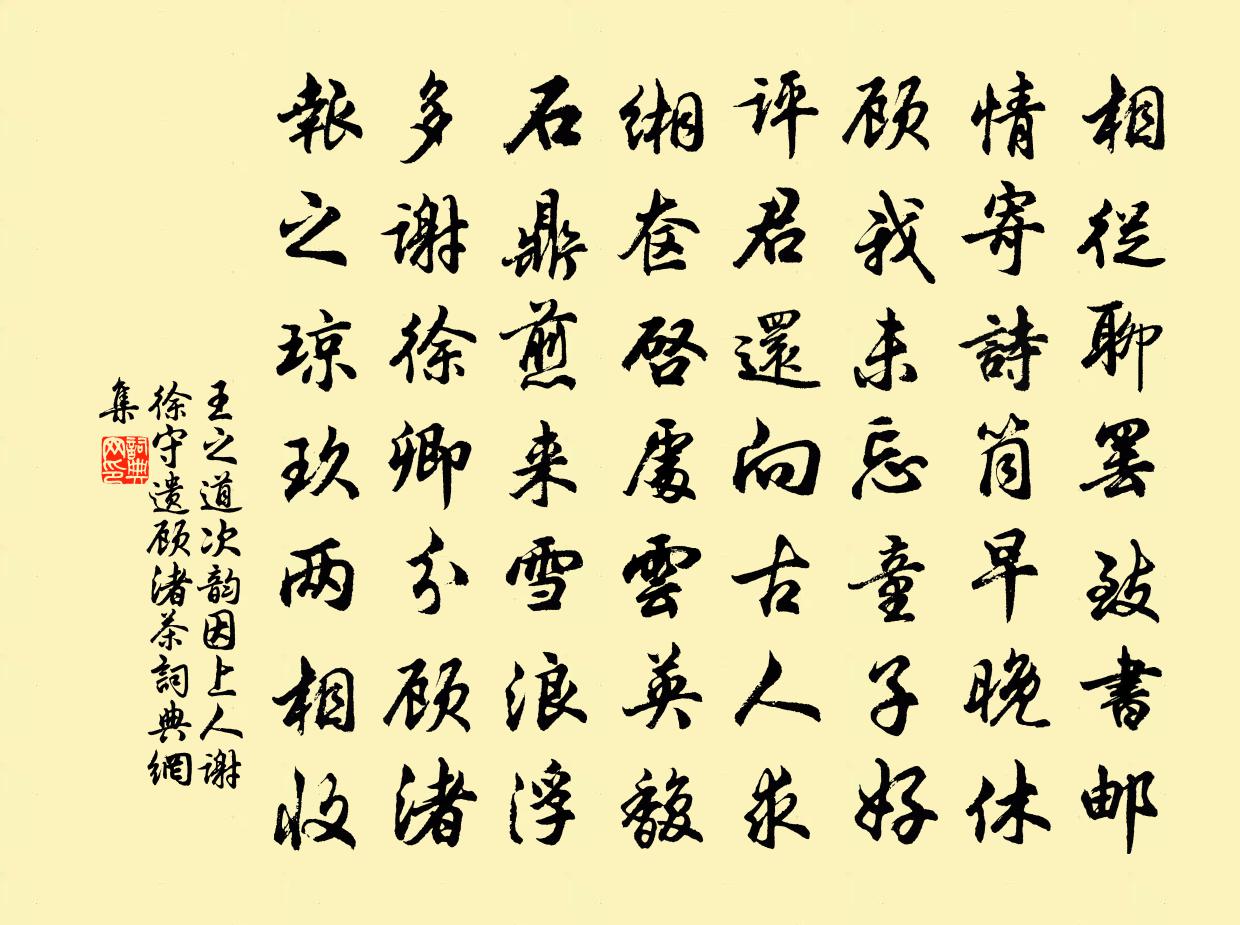 相從聊罢致書邮
情寄詩筒早晚休
顾我未忘童子好
评君還向古人求
缃奁啓處雲英馥
石鼎煎来雪浪浮
多谢徐卿分顾渚
報之琼玖两相收
王之道次韵因上人谢
徐守遗顾渚茶詞典網
集
詞典